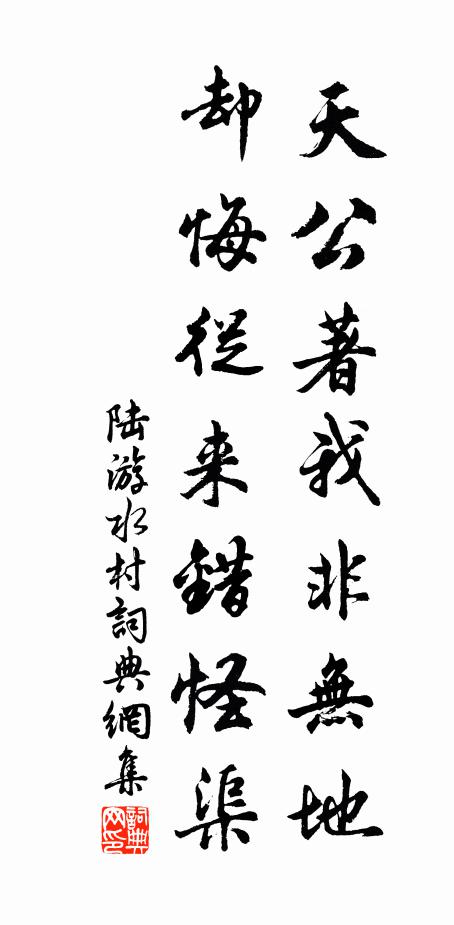 天公著我非無地
却悔從来錯怪渠
陆游水村詞典網集
詞典网印